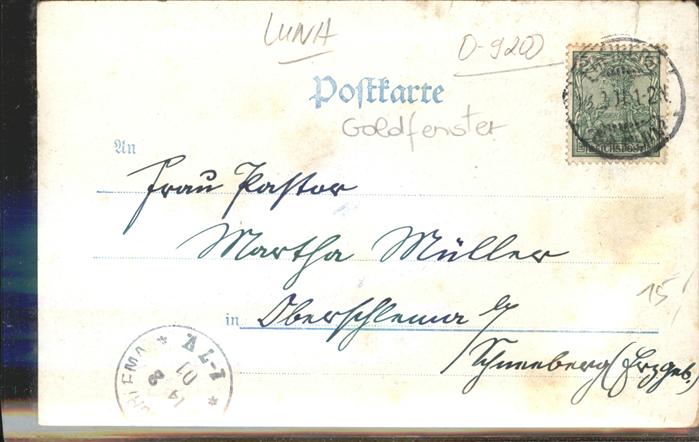 LUNA
0-9200
Postkarte
Goldfenster
An
Frau Pastor
Martha Müller
in Oberschlema b/
Schneeberg (Erzgeb.)
15
REICHSPOST
1-2N
14 8 01
* 6-7 V. *